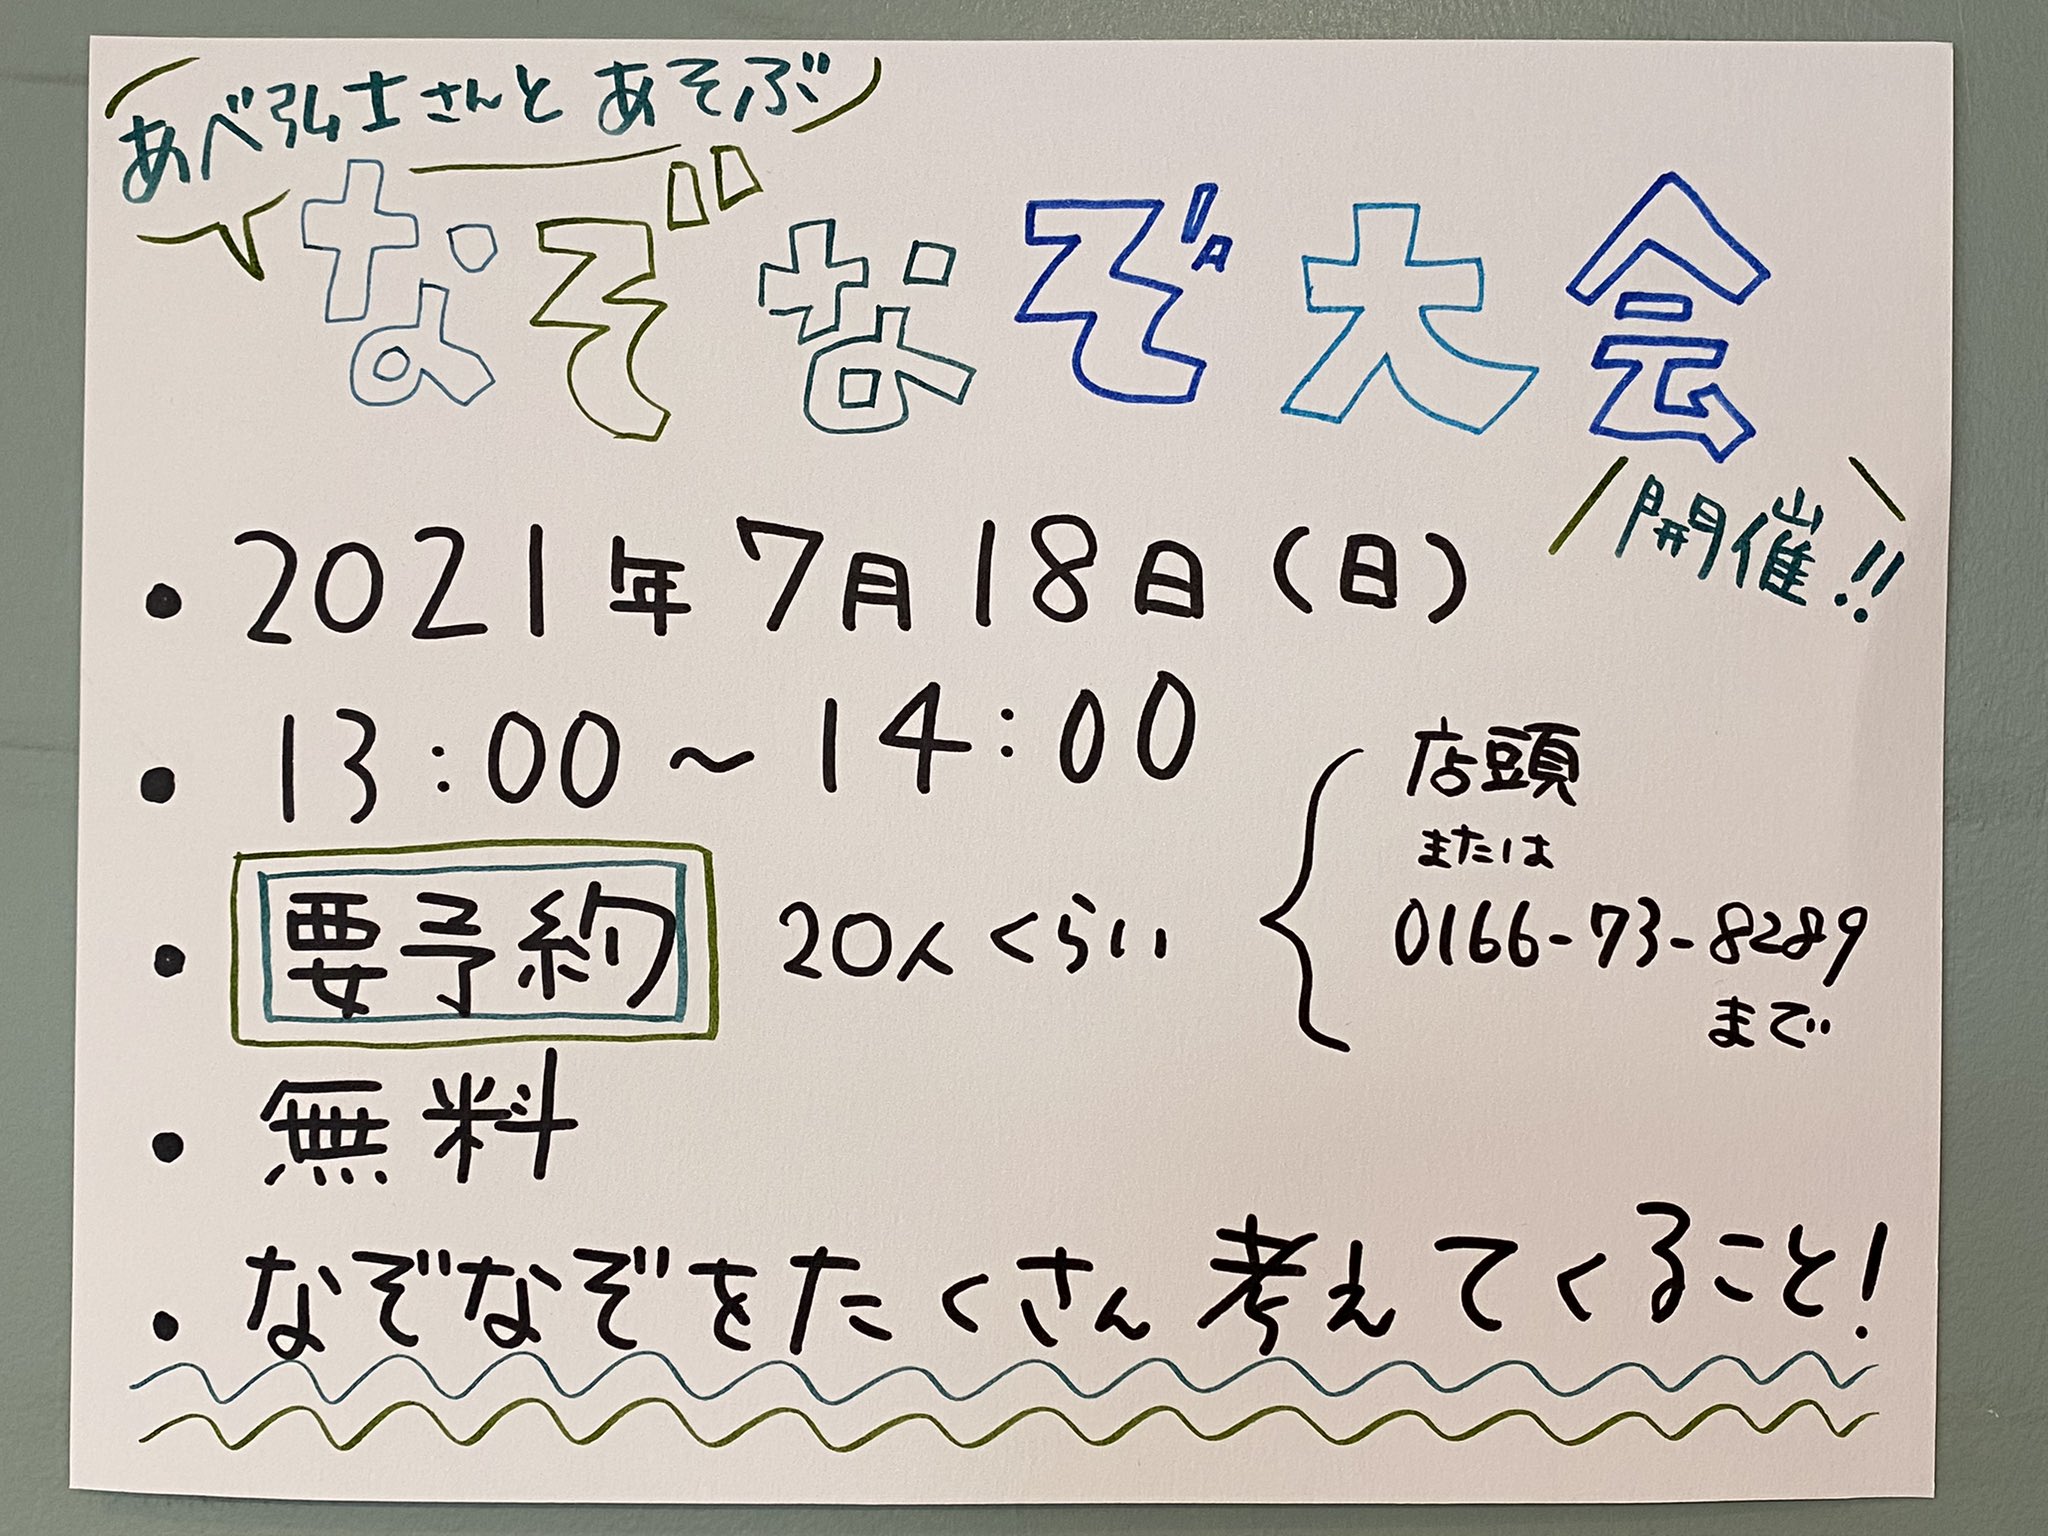 あべ弘士さんとあそぶ
なぞなぞ大会
開催!!
・2021年7月18日(日)
・13:00〜14:00
・要予約 20人くらい
店頭
または
0166-73-8289
まで
・無料
・なぞなぞをたくさん考えてくること!